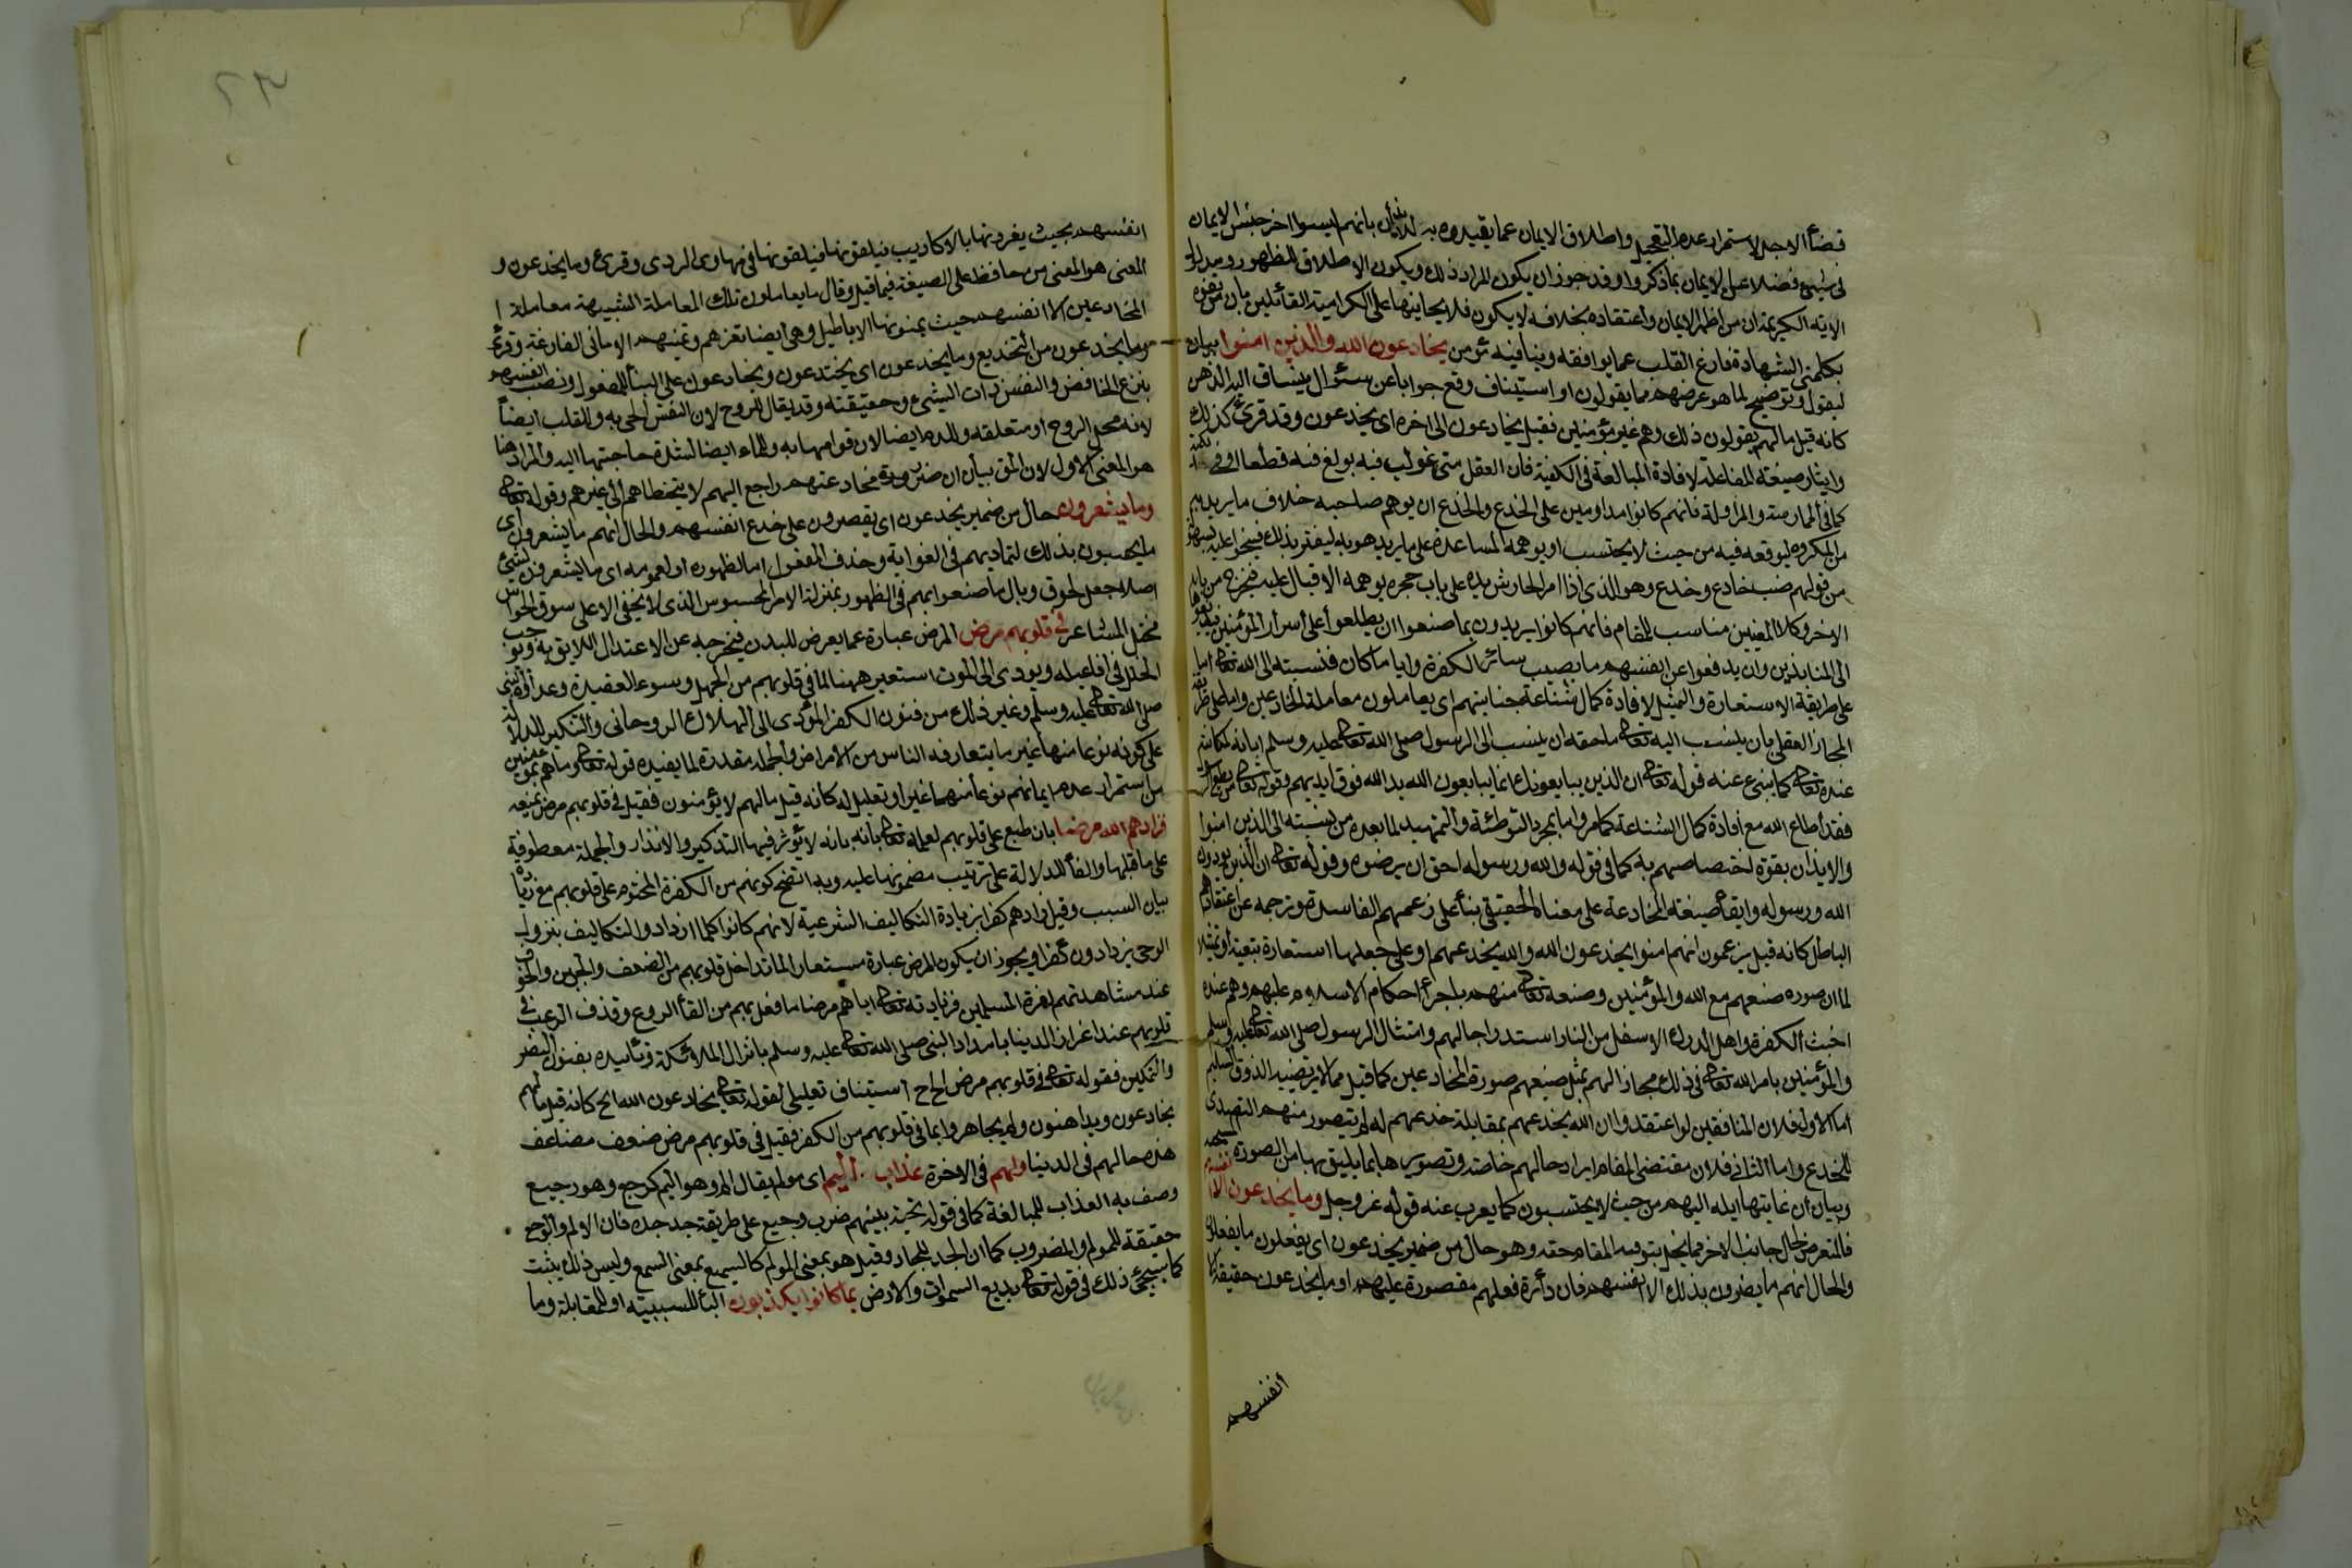 قضأ الاجل لاستمرار عدم التعجيل واطلاق الايمان عما يقيدوه به للايذان بانهم ليسوا من جنس الايمان
فى شيئ فضلا عن الايمان بما ذكروا وقد جوز ان يكون المراد ذلك ويكون الاطلاق للظهور ومدلول
الاية الكريمة ان من اظهر الايمان واعتقاده بخلافه لا يكون فلا حجة فيها على الكرامية القائلين بان من تفوه
بكلمتى الشهادة فارغ القلب عما يوافقه وينافيه مؤمن يخادعون الله والذين امنوا بيان
ليقول وتوضيح لما هو غرضهم مما يقولون او استيناف وقع جوابا عن سئوال ينساق اليه الذهن
كانه قيل مالهم يقولون ذلك وهم غير مؤمنين فقيل يخادعون الى اخره اى يخدعون وقد قرئ كذلك
وايثار صيغة المفاعلة لافادة المبالغة فى الكيفية فان العقل متى غولب فيه بولغ فيه قطعا او فى الكمية
كما فى الممارسة والمزاولة فانهم كانوا مداومين على الخدع والخدع ان يوهم صاحبه خلاف ما يريد به
من المكروه ليوقعه فيه من حيث لا يحتسب او يوهمه المساعدة على ما يريد هو به ليغتر بذلك فينجو اعليه بسهولة
من قولهم ضب خادع وخدع وهو الذى اذا امر الحارش يده على باب حجره يوهمه الاقبال عليه فيخرج من بابه
الاخر وكلا المعنيين مناسب للمقام فانهم كانوا يريدون بما صنعوا ان يطلعوا على اسرار المؤمنين فيذيعوها
الى المنابذين وان يدفعوا عن انفسهم ما يصيب سائر الكفرة وايا ما كان فنسبته الى الله تعالى اما
على طريقة الاستعارة والتمثيل لافادة كمال شناعة جنايتهم اى يعاملون معاملة الخادعين واما على طريقة
المجاز العقلى بان ينسب اليه تعالى ما حقه ان ينسب الى الرسول صلى الله تعالى عليه وسلم ابانة لمكانته
عنده تعالى كما ينبئ عنه قوله تعالى ان الذين يبايعونك انما يبايعون الله يد الله فوق ايديهم وقوله تعالى من يطع الرسول
فقد اطاع الله مع افادة كمال الشناعة كما مر واما لمجرد التوطئة والتمهيد لما بعده من نسبته الى الذين امنوا
والايذان بقوة اختصاصهم به كما فى قوله والله ورسوله احق ان يرضوه وقوله تعالى ان الذين يؤذون
الله ورسوله وابقأ صيغة المخادعة على معناه الحقيقى بنأ على زعمهم الفاسد وترجمة عن اعتقادهم
الباطل كانه قيل يزعمون انهم امنوا يخدعون الله والله يخدعهم او على جعلها استعارة تبعية او تمثيلا
لما ان صورة صنعهم مع الله والمؤمنين وصنعه تعالى منهم باجرأ احكام الاسلام عليهم وهم عنده
اخبث الكفرة واهل الدرك الاسفل من النار استدراجا لهم وامتثال الرسول صلى الله تعالى عليه وسلم
والمؤمنين بامر الله تعالى فى ذلك مجازاة لهم بمثل صنيعهم صورة المخادعين كما قيل مما لا يرتضيه الذوق السليم
اما الاول فلان المنافقين لو اعتقدوا ان الله يخدعهم بمقابلة خدعهم له لم يتصور منهم التصدى
للخدع واما الثانى فلان مقتضى المقام ايراد حالهم خاصة وتصويرها بما يليق بها من الصورة
وبيان ان غايتها ايلة اليهم من حيث لا يحتسبون كما يعرب عنه قوله عز وجل وما يخدعون الا انفسهم
فالتعرض لحال جانب الاخر مما يخل بتوفية المقام حقه وهو حال من ضمير يخدعون اى يفعلون ما يفعلون
والحال انهم ما يضرون بذلك الا انفسهم فان دأرة فعلهم مقصورة عليهم او ما يخدعون حقيقة الا
انفسهم
٢٣
انفسهم بحيث يغرونها بالاكاذيب فيلقونها فى مهاوى الردى وقرئ وما يخدعون و
المعنى هو المعنى من حافظ على الصيغة فيما قبل وقال ما يعاملون تلك المعاملة الشبيهة معاملة ا
المخادعين الا انفسهم حيث يمنونها الاباطيل وهى ايضا تغرهم وتمنيهم الامانى الفارغة وقرئ
وما يخدعون من التخديع وما يخدعون اى يختدعون ويخادعون على البنأ للمفعول ونصب انفسهم
بنزع الخافض والنفس ذات الشيئ وحقيقته وقد يقال للروح لان النفس الحى به وللقلب ايضاً
لانه محل الروح او متعلقه وللدم ايضا لان قوامها به وللماء ايضا لشدة حاجتها اليه والمراد هنا
هو المعنى الاول لان المق بيان ان ضرر مخادعتهم راجع اليهم لا يتخطاهم الى غيرهم وقوله تعالى
وما يشعرون حال من ضمير يخدعون اى يقصرون على خدع انفسهم والحال انهم ما يشعرون اى
ما يحسون بذلك لتماديهم فى الغواية وحذف المفعول اما لظهوره او لعمومه اى ما يشعرون بشئ
اصلا جعل لحوق وبال ما صنعوا بهم فى الظهور بمنزلة الامر المحسوس الذى لا يخفى الا على مؤوف الحواس
مختل المشاعر فى قلوبهم مرض المرض عبارة عما يعرض للبدن فيخرجه عن الاعتدال اللايق به ويوجب
الخلل فى افاعيله ويودى الى الموت استعير ههنا لما فى قلوبهم من الجهل وسوء العقيدة وعداوة النبى
صلى الله تعالى عليه وسلم وغير ذلك من فنون الكفر المؤدى الى الهلاك الروحانى والتنكير للدلالة
على كونه نوعا منها غير ما يتعارفه الناس من الامراض والجملة مقدرة لما يفيده قوله تعالى وما هم بمؤمنين
من استمرار عدم ايمانهم نوعا منها غير او تعليل له كانه قيل مالهم لا يؤمنون فقيل فى قلوبهم مرض يمنعه
فزادهم الله مرضا بان طبع على قلوبهم لعلمه تعالى بانه لا يؤثر فيها التذكير والانذار والجملة معطوفة
على ما قبلها والفأ للدلالة على ترتيب مضمونها عليه وبه اتضح كونهم من الكفرة المختوم على قلوبهم مع زيادة
بيان السبب وقيل زادهم كفرا بزيادة التكاليف الشرعية لانهم كانوا كلما ازداد والتكاليف بنزول
الوحى يزدادون كفرا ويجوز ان يكون المرض عبارة مستعارا لما تداخل قلوبهم من الضعف والجبن والخوف
عند مشاهدتهم لعزة المسلمين فزيادته تعالى اياهم مرضا ما فعل بهم من القأ الروع وقذف الرعب فى
قلوبهم عند اعزاز الدين بامداد النبى صلى الله تعالى عليه وسلم بانزال الملائكة وتأييده بفنون النصر
والتمكين فقوله تعالى فى قلوبهم مرض الخ استيناف تعليلى لقوله تعالى يخادعون الله الخ كانه قيل مالهم
يخادعون ويداهنون ولم يجاهروا بما فى قلوبهم من الكفر فقيل فى قلوبهم مرض ضعف مضاعف
هذه حالهم فى الدنيا ولهم فى الاخرة عذاب اليم اى مولم يقال الم وهو اليم كوجع وهو وجيع
وصف به العذاب للمبالغة كما فى قوله تحية بينهم ضرب وجيع على طريقة جد جده فان الالم والوجع
حقيقة للمولم والمضروب كما ان الجد للجاد وقيل هو بمعنى المولم كالسميع بمعنى المسمع وليس ذلك بثبت
كما سيجئ ذلك فى قوله تعالى بديع السموات والارض بما كانوا يكذبون البأ للسببية او للمقابلة وما